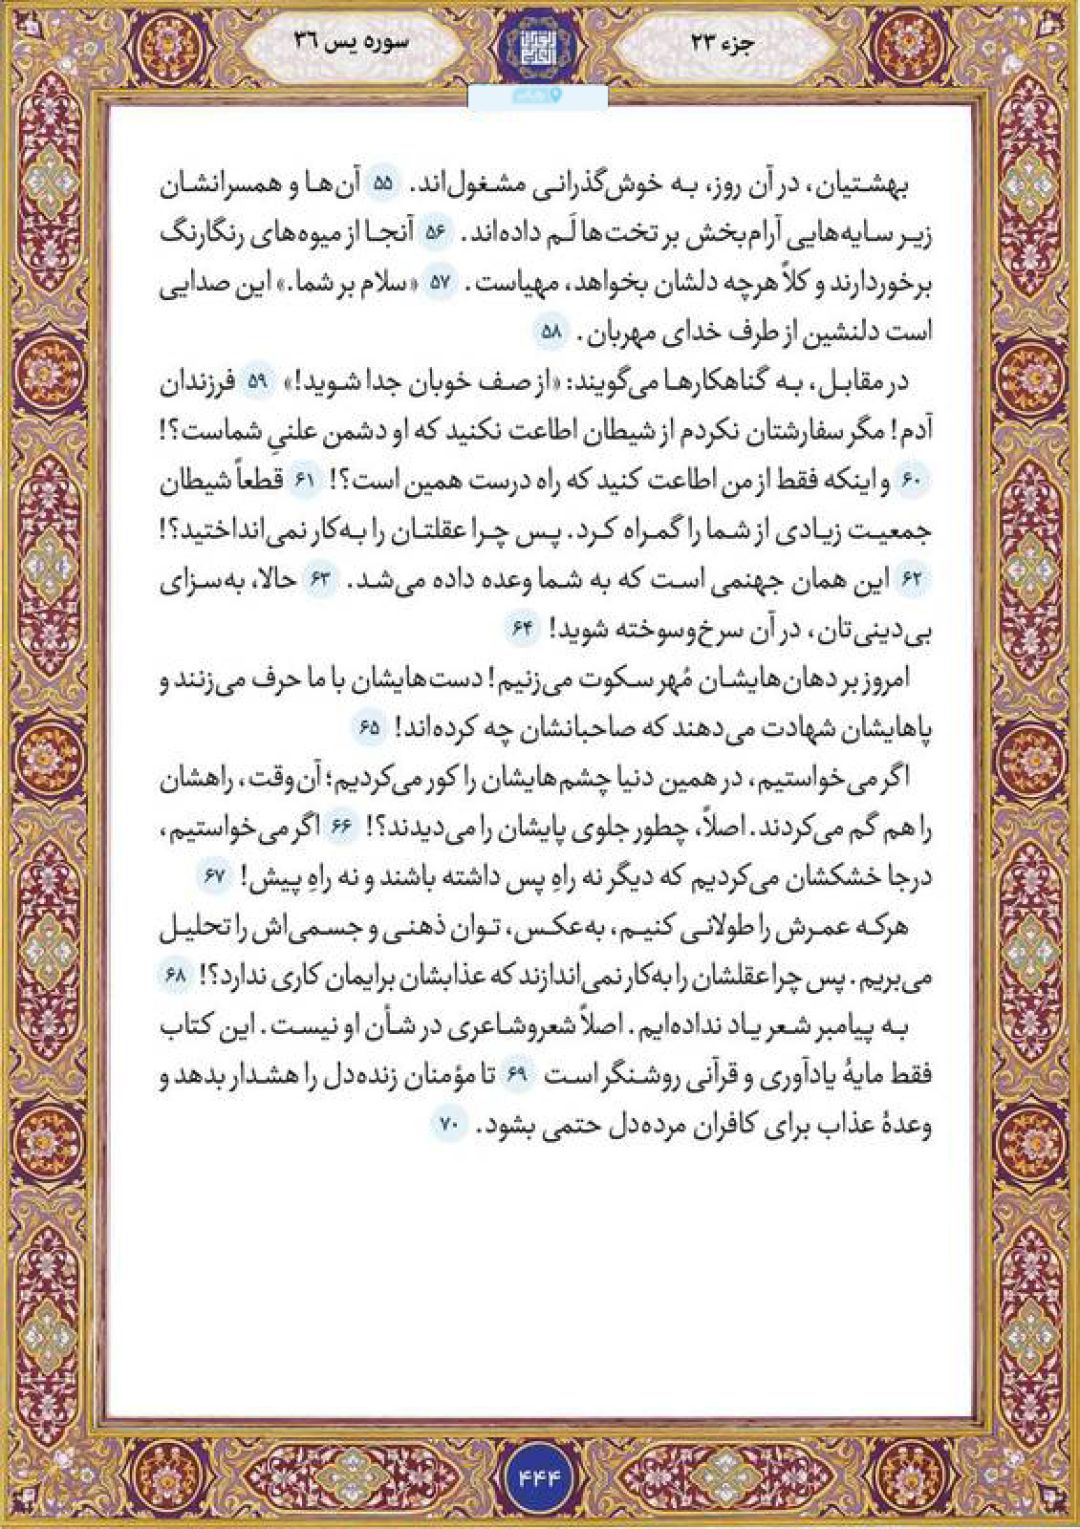 جزء ۲۳
سوره یس ۳۶
بهشتیان، در آن روز، به خوش‌گذرانی مشغول‌اند. ۵۵ آن‌ها و همسرانشان
زیر سایه‌هایی آرام‌بخش بر تخت‌ها لَم داده‌اند. ۵۶ آنجا از میوه‌های رنگارنگ
برخوردارند و کلاً هرچه دلشان بخواهد، مهیاست. ۵۷ «سلام بر شما.» این صدایی
است دلنشین از طرف خدای مهربان. ۵۸
در مقابل، به گناهکارها می‌گویند: «از صف خوبان جدا شوید!» ۵۹ فرزندان
آدم! مگر سفارشتان نکردم از شیطان اطاعت نکنید که او دشمن علنیِ شماست؟!
۶۰ و اینکه فقط از من اطاعت کنید که راه درست همین است؟! ۶۱ قطعاً شیطان
جمعیت زیادی از شما را گمراه کرد. پس چرا عقلتان را به‌کار نمی‌انداختید؟!
۶۲ این همان جهنمی است که به شما وعده داده می‌شد. ۶۳ حالا، به‌سزای
بی‌دینی‌تان، در آن سرخ‌وسوخته شوید! ۶۴
امروز بر دهان‌هایشان مُهر سکوت می‌زنیم! دست‌هایشان با ما حرف می‌زنند و
پاهایشان شهادت می‌دهند که صاحبانشان چه کرده‌اند! ۶۵
اگر می‌خواستیم، در همین دنیا چشم‌هایشان را کور می‌کردیم؛ آن‌وقت، راهشان
را هم گم می‌کردند. اصلاً، چطور جلوی پایشان را می‌دیدند؟! ۶۶ اگر می‌خواستیم،
درجا خشکشان می‌کردیم که دیگر نه راهِ پس داشته باشند و نه راهِ پیش! ۶۷
هرکه عمرش را طولانی کنیم، به‌عکس، توان ذهنی و جسمی‌اش را تحلیل
می‌بریم. پس چرا عقلشان را به‌کار نمی‌اندازند که عذابشان برایمان کاری ندارد؟! ۶۸
به پیامبر شعر یاد نداده‌ایم. اصلاً شعروشاعری در شأن او نیست. این کتاب
فقط مایهٔ یادآوری و قرآنی روشنگر است ۶۹ تا مؤمنان زنده‌دل را هشدار بدهد و
وعدهٔ عذاب برای کافران مرده‌دل حتمی بشود. ۷۰
۴۴۴